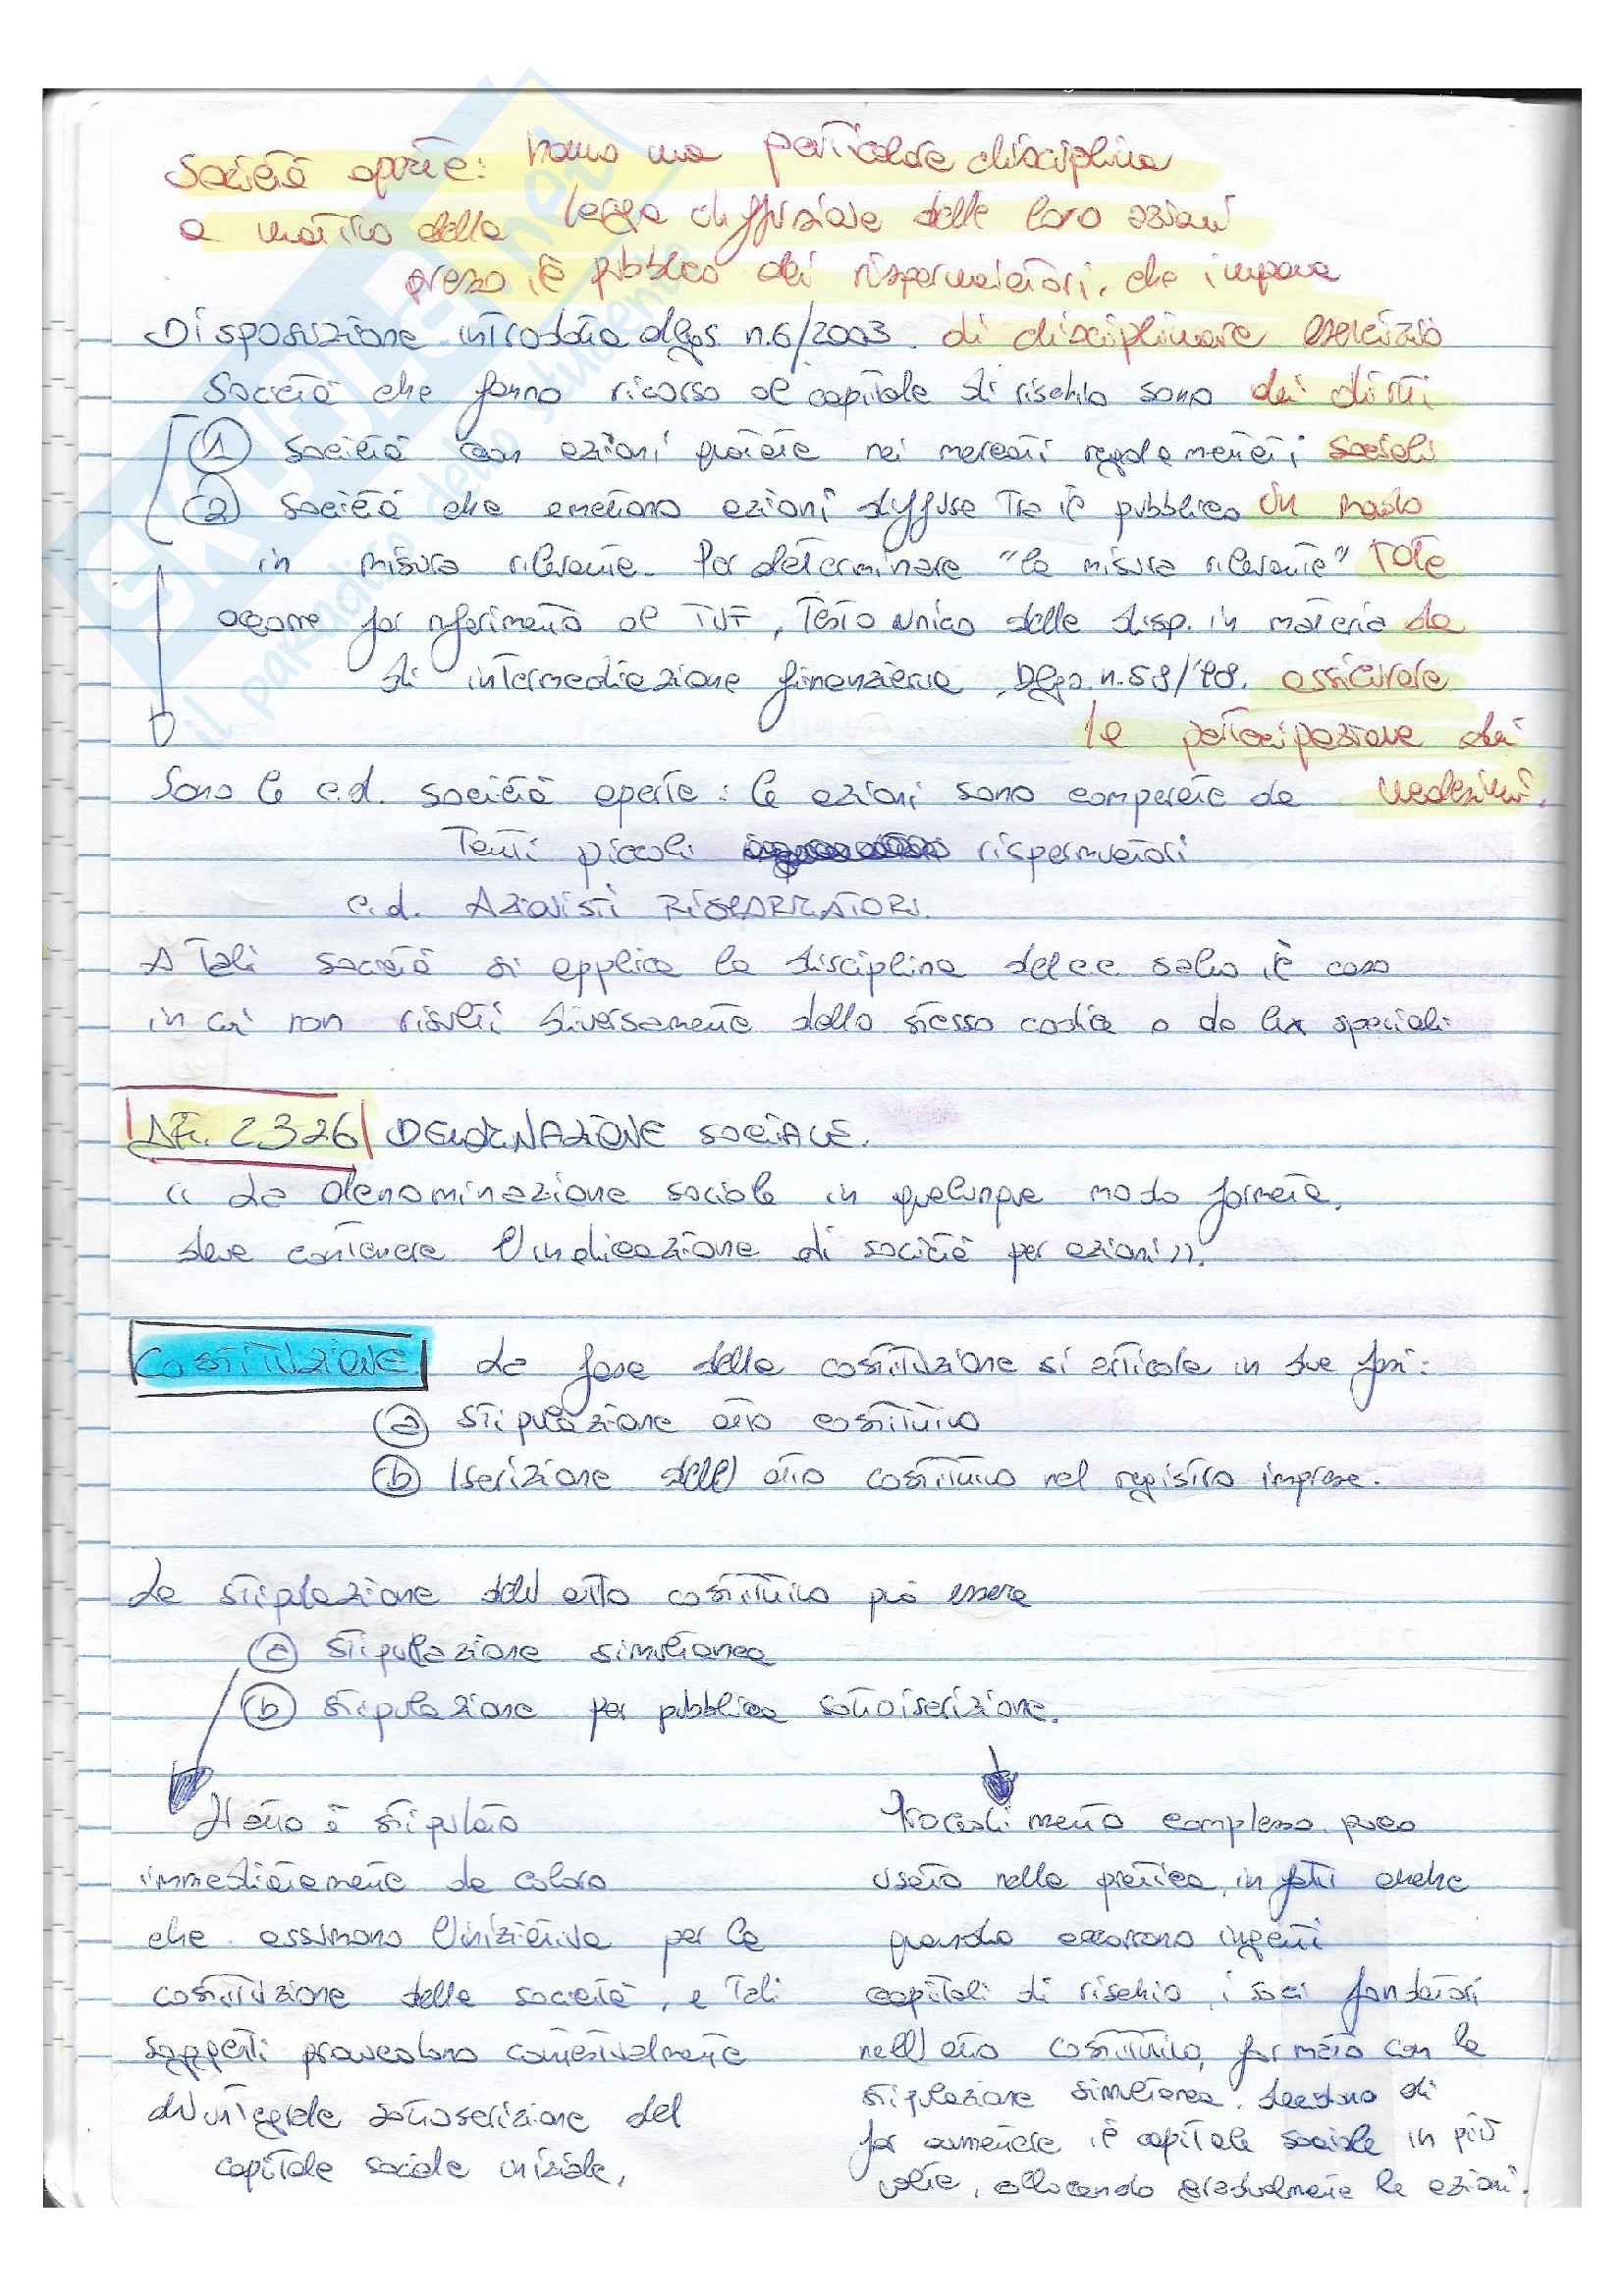 Società aperte: hanno una particolare disciplina
a motivo della larga diffusione delle loro azioni
presso il pubblico dei risparmiatori, che impone
di disciplinare esercizio
dei diritti
sociali
in modo
tale
da
assicurare
la partecipazione dei
medesimi.
Disposizione introdotta dlgs. n.6/2003.
Società che fanno ricorso al capitale di rischio sono
1 Società con azioni quotate nei mercati regolamentati
2 Società che emettono azioni diffuse tra il pubblico
in misura rilevante. Per determinare "la misura rilevante"
occorre far riferimento al TUF, Testo unico delle disp. in materia
di intermediazione finanziaria, Dlgs. n.58/'98.
Sono le c.d. società aperte: le azioni sono comperate da
tanti piccoli risparmiatori
c.d. AZIONISTI RISPARMIATORI.
A tali società si applica la disciplina del c.c. salvo il caso
in cui non risulti diversamente dallo stesso codice o da lex speciali.
Art. 2326 DENOMINAZIONE SOCIALE.
" La denominazione sociale in qualunque modo formata,
deve contenere l'indicazione di società per azioni».
COSTITUZIONE La fase della costituzione si articola in due fasi:
a stipulazione atto costitutivo
b Iscrizione dell'atto costitutivo nel registro imprese.
La stipulazione dell'atto costitutivo può essere
a stipulazione simultanea
b stipulazione per pubblica sottoiscrizione.
L'atto è stipulato
immediatamente da coloro
che assumono l'iniziativa per la
costituzione della società, e tali
soggetti provvedono contestualmente
all'integrale sottoscrizione del
capitale sociale iniziale,
Procedimento complesso poco
usato nella pratica, infatti anche
quando occorrono ingenti
capitali di rischio, i soci fondatori
nell'atto costitutivo, formato con la
stipulazione simultanea. decidono di
far aumentare il capitale sociale in più
volte, collocando gradualmente le azioni.
SKUOLA.net
il paradiso dello studente